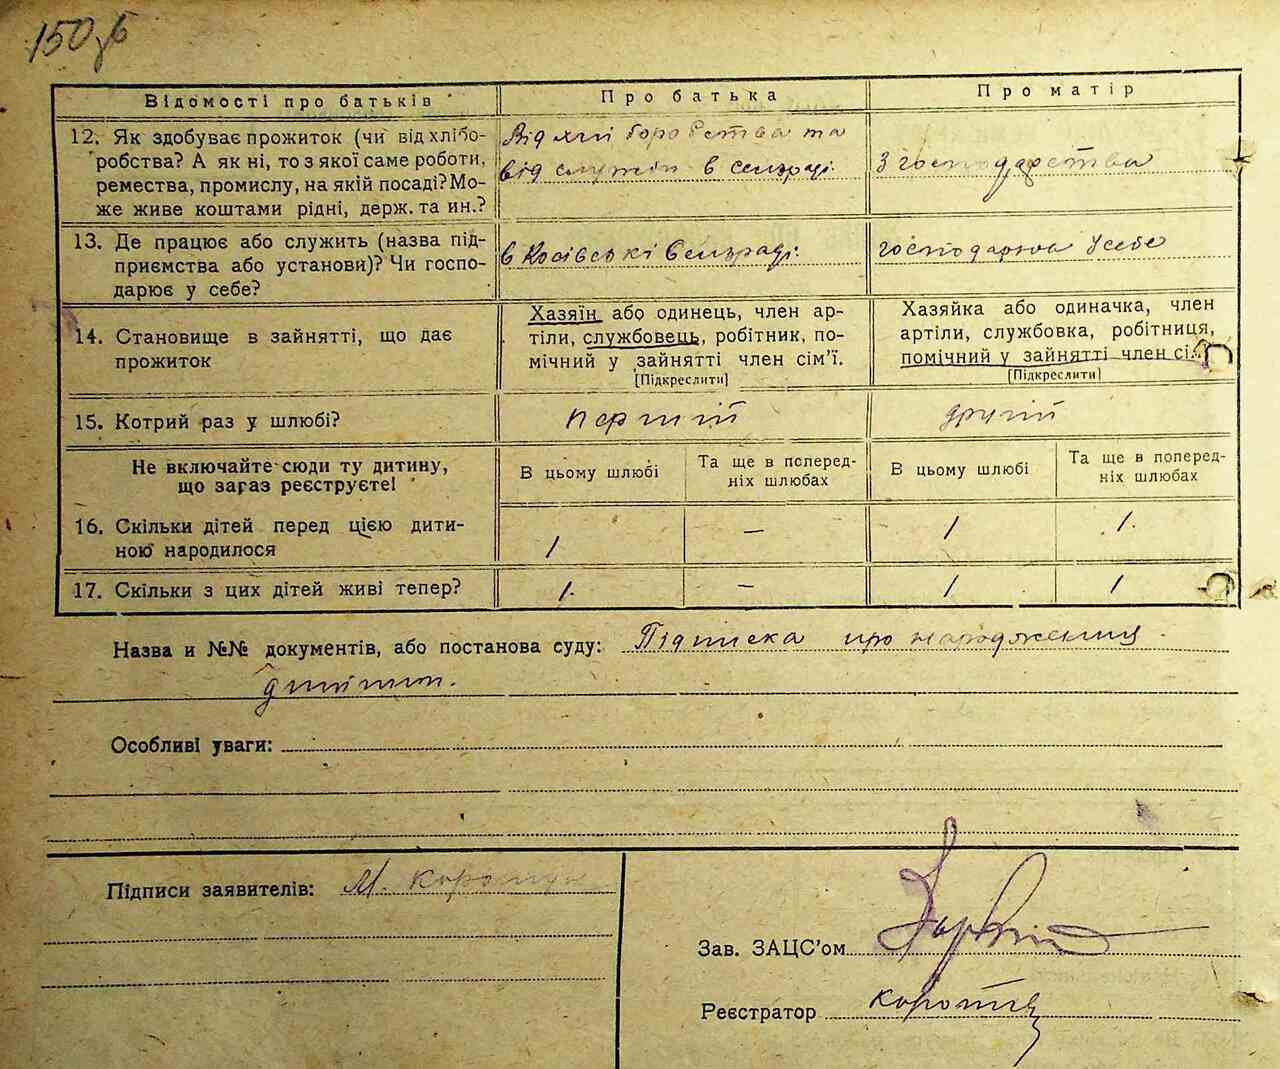 150зб
Відомості про батьків
Про батька
Про матір
12. Як здобуває прожиток (чи від хлібо-
робства? А як ні, то з якої саме роботи,
ремества, промислу, на якій посаді? Мо-
же живе коштами рідні, держ. та ин.?
Від хлі боробства та
від служби в сельраді.
З господарства
13. Де працює або служить (назва під-
приємства або установи)? Чи госпо-
дарює у себе?
в Косівські Сельраді.
господарює у себе
14. Становище в зайнятті, що дає
прожиток
Хазяїн або одинець, член ар-
тіли, службовець, робітник, по-
мічний у зайнятті член сім'ї.
[Підкреслити]
Хазяйка або одиначка, член
артіли, службовка, робітниця,
помічний у зайнятті член сім
[Підкреслити]
15. Котрий раз у шлюбі?
перший
другий
Не включайте сюди ту дитину,
що зараз реєструєте!
В цьому шлюбі
Та ще в поперед-
ніх шлюбах
В цьому шлюбі
Та ще в поперед-
ніх шлюбах
16. Скільки дітей перед цією дити-
ною народилося
1
—
1
1.
17. Скільки з цих дітей живі тепер?
1.
—
1
1
Назва и №№ документів, або постанова суду: Підписка про народження
дитини.
Особливі уваги:
Підписи заявителів: М.
Зав. ЗАЦС'ом
Реєстратор